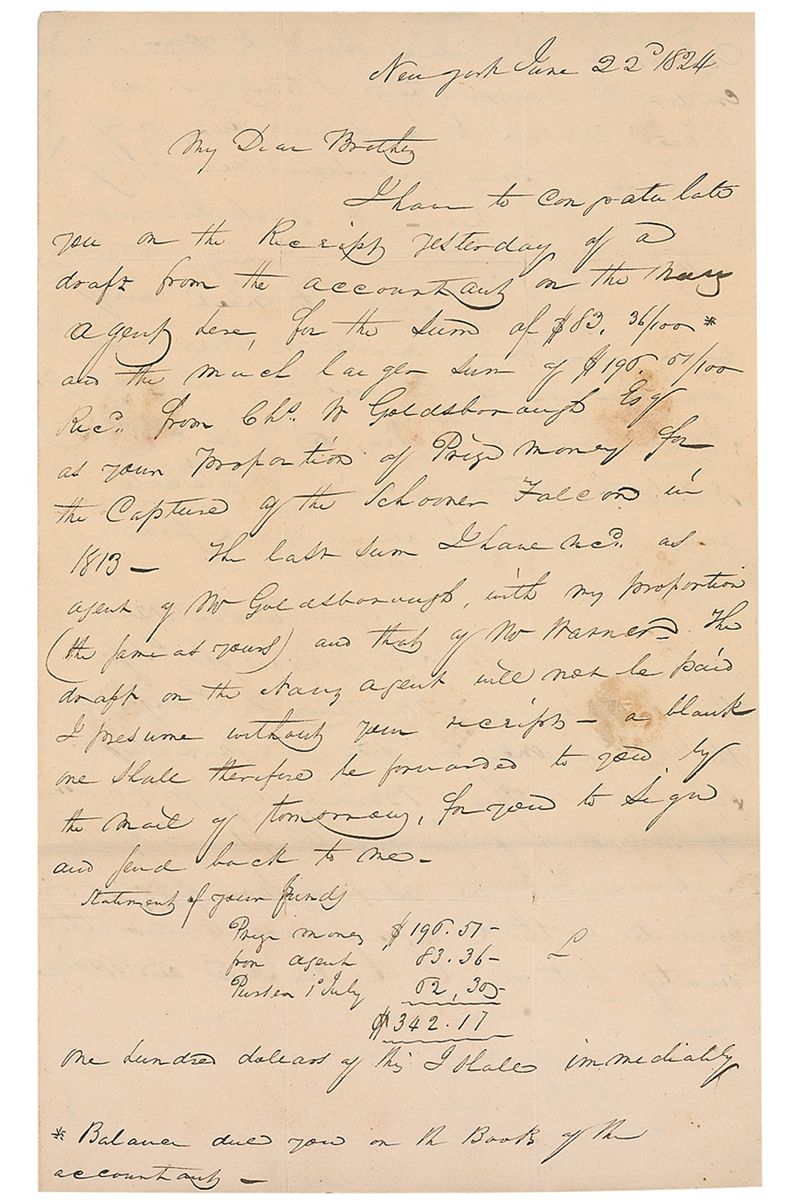 New york June 22d 1824
My Dear Brother
I have to congratulate
you on the Receipt yesterday of a
draft from the accountant on the Navy
agent here, for the sum of $83. 36/100 *
and the much larger sum of $196. 51/100
Recd. from Chs. W Goldsborough Esq
as your proportion of Prize money for
the Capture of the Schooner Falcon in
1813 — The last sum I have recd. as
agent of Mr Goldsborough, with my proportion
(the same as yours) and that of Mr Warner. The
draft on the Navy agent will not be paid
I presume without your receipts — a blank
one shall therefore be forwarded to you by
the mail of tomorrow, for you to sign
and send back to me —
Statement of your funds
Prize money $196.51 —
from agent 83.36 —
Purser 1st July 62,30 —
$342.17
one hundred dollars of this I shall immediately
* Balance due you on the Book of the
accountant —